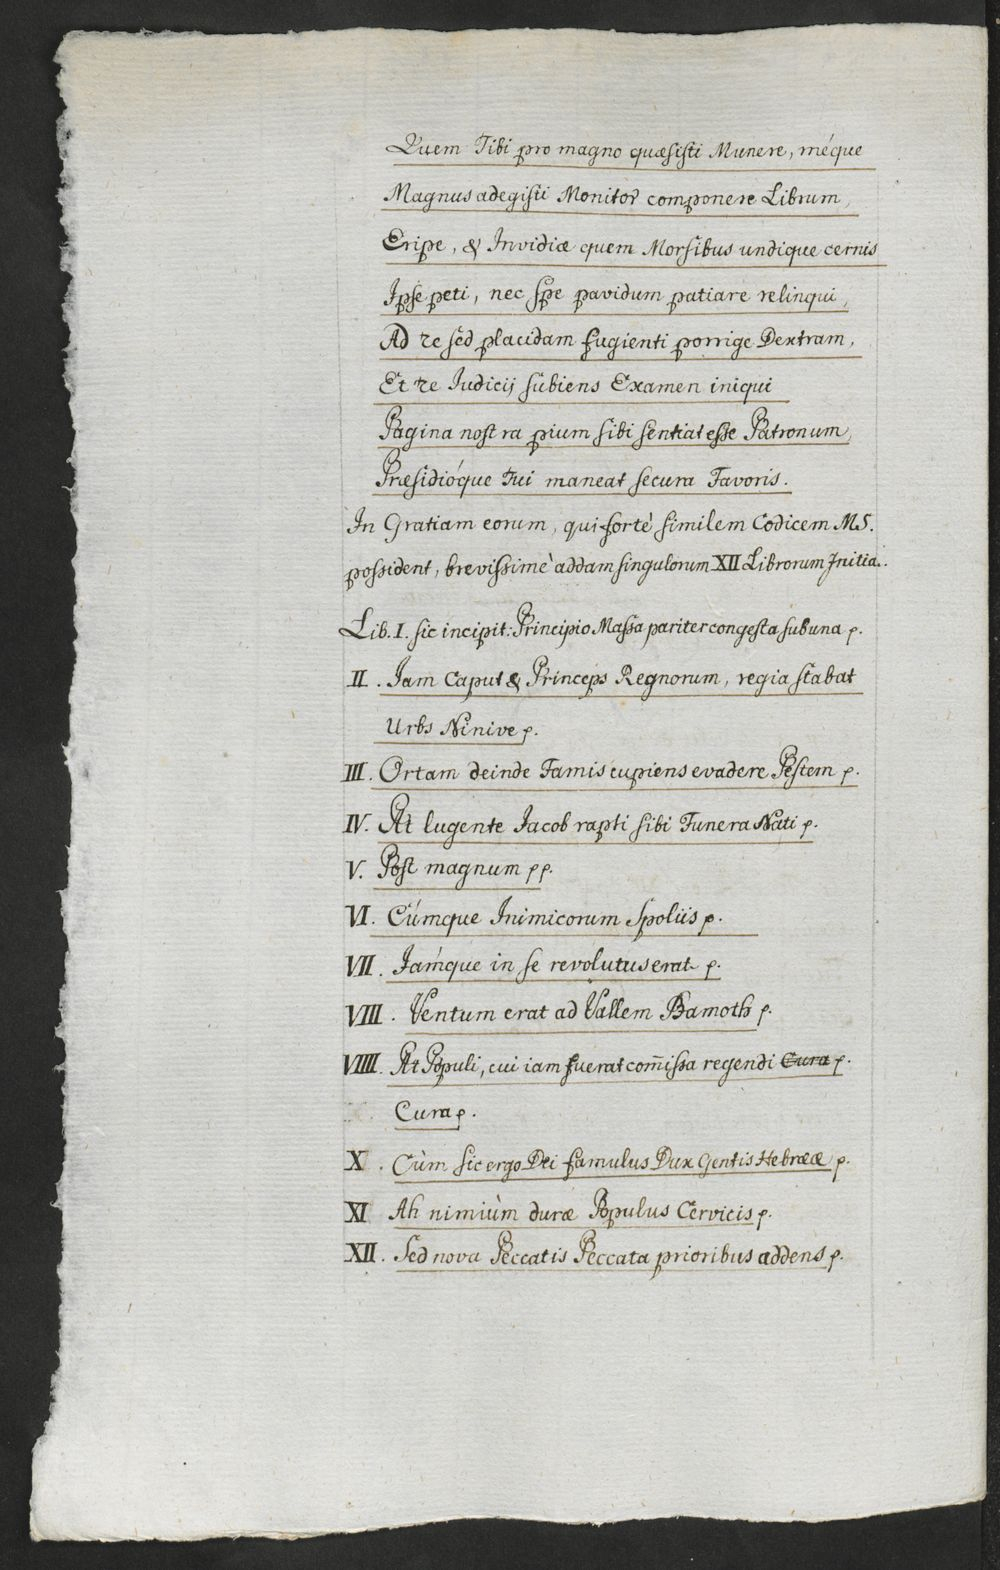 Quem Tibi pro magno quæsisti Munere, méque
Magnus adegisti Monitor componere Librum,
Eripe, & Invidiæ quem Morsibus undique cernis
Ipse peti, nec spe pavidum patiare relinqui,
Ad te sed placidam fugienti porrige Dextram,
Et te Iudicij subiens Examen iniqui
Pagina nostra pium sibi sentiat esse Patronum,
Præsidióque Tui maneat secura Favoris.
In Gratiam eorum, qui fortè similem Codicem MS.
possident, brevissimè addam singulorum XII Librorum Initia.
Lib. I. sic incipit: Principio Massa pariter congesta sub una p.
II. Iam Caput & Princeps Regnorum, regia stabat
Urbs Ninive p.
III. Ortam deinde Famis cupiens evadere Pestem p.
IV. At lugente Jacob rapti sibi Funera Nati p.
V. Post magnum pp.
VI. Cúmque Inimicorum Spoliis p.
VII. Iamque in se revolutus erat p.
VIII. Ventum erat ad Vallem Bamoth p.
VIIII. At Populi, cui iam fuerat com̄issa regendi Cura p.
Cura p.
X. Cùm sic ergo Dei famulus Dux Gentis Hebrææ p.
XI Ah nimiùm duræ Populus Cervicis p.
XII. Sed nova Peccatis Peccata prioribus addens p.